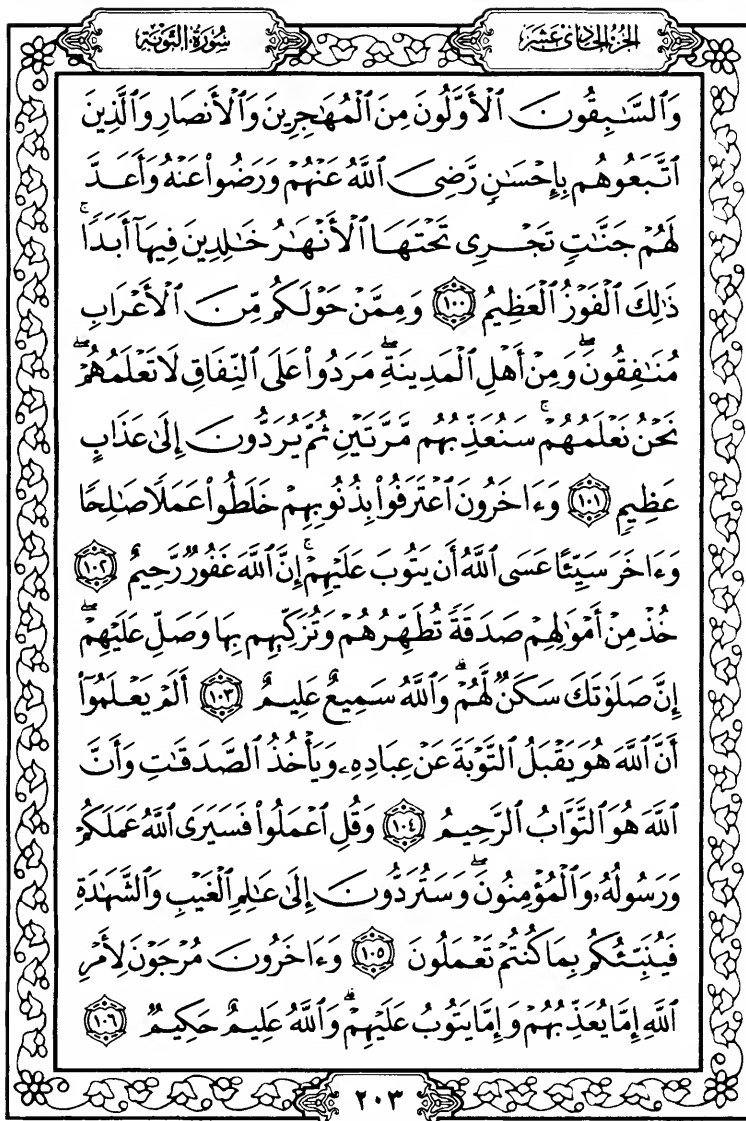 الجزء الحادي عشر
سورة التوبة
وَٱلسَّٰبِقُونَ ٱلْأَوَّلُونَ مِنَ ٱلْمُهَٰجِرِينَ وَٱلْأَنصَارِ وَٱلَّذِينَ
ٱتَّبَعُوهُم بِإِحْسَٰنٍ رَّضِىَ ٱللَّهُ عَنْهُمْ وَرَضُوا۟ عَنْهُ وَأَعَدَّ
لَهُمْ جَنَّٰتٍ تَجْرِى تَحْتَهَا ٱلْأَنْهَٰرُ خَٰلِدِينَ فِيهَآ أَبَدًا ۚ
ذَٰلِكَ ٱلْفَوْزُ ٱلْعَظِيمُ ١٠٠ وَمِمَّنْ حَوْلَكُم مِّنَ ٱلْأَعْرَابِ
مُنَٰفِقُونَ ۖ وَمِنْ أَهْلِ ٱلْمَدِينَةِ ۖ مَرَدُوا۟ عَلَى ٱلنِّفَاقِ لَا تَعْلَمُهُمْ ۖ
نَحْنُ نَعْلَمُهُمْ ۚ سَنُعَذِّبُهُم مَّرَّتَيْنِ ثُمَّ يُرَدُّونَ إِلَىٰ عَذَابٍ
عَظِيمٍ ١٠١ وَءَاخَرُونَ ٱعْتَرَفُوا۟ بِذُنُوبِهِمْ خَلَطُوا۟ عَمَلًا صَٰلِحًا
وَءَاخَرَ سَيِّئًا عَسَى ٱللَّهُ أَن يَتُوبَ عَلَيْهِمْ ۚ إِنَّ ٱللَّهَ غَفُورٌ رَّحِيمٌ ١٠٢
خُذْ مِنْ أَمْوَٰلِهِمْ صَدَقَةً تُطَهِّرُهُمْ وَتُزَكِّيهِم بِهَا وَصَلِّ عَلَيْهِمْ ۖ
إِنَّ صَلَوٰتَكَ سَكَنٌ لَّهُمْ ۗ وَٱللَّهُ سَمِيعٌ عَلِيمٌ ١٠٣ أَلَمْ يَعْلَمُوٓا۟
أَنَّ ٱللَّهَ هُوَ يَقْبَلُ ٱلتَّوْبَةَ عَنْ عِبَادِهِۦ وَيَأْخُذُ ٱلصَّدَقَٰتِ وَأَنَّ
ٱللَّهَ هُوَ ٱلتَّوَّابُ ٱلرَّحِيمُ ١٠٤ وَقُلِ ٱعْمَلُوا۟ فَسَيَرَى ٱللَّهُ عَمَلَكُمْ
وَرَسُولُهُۥ وَٱلْمُؤْمِنُونَ ۖ وَسَتُرَدُّونَ إِلَىٰ عَٰلِمِ ٱلْغَيْبِ وَٱلشَّهَٰدَةِ
فَيُنَبِّئُكُم بِمَا كُنتُمْ تَعْمَلُونَ ١٠٥ وَءَاخَرُونَ مُرْجَوْنَ لِأَمْرِ
ٱللَّهِ إِمَّا يُعَذِّبُهُمْ وَإِمَّا يَتُوبُ عَلَيْهِمْ ۗ وَٱللَّهُ عَلِيمٌ حَكِيمٌ ١٠٦
٢٠٣